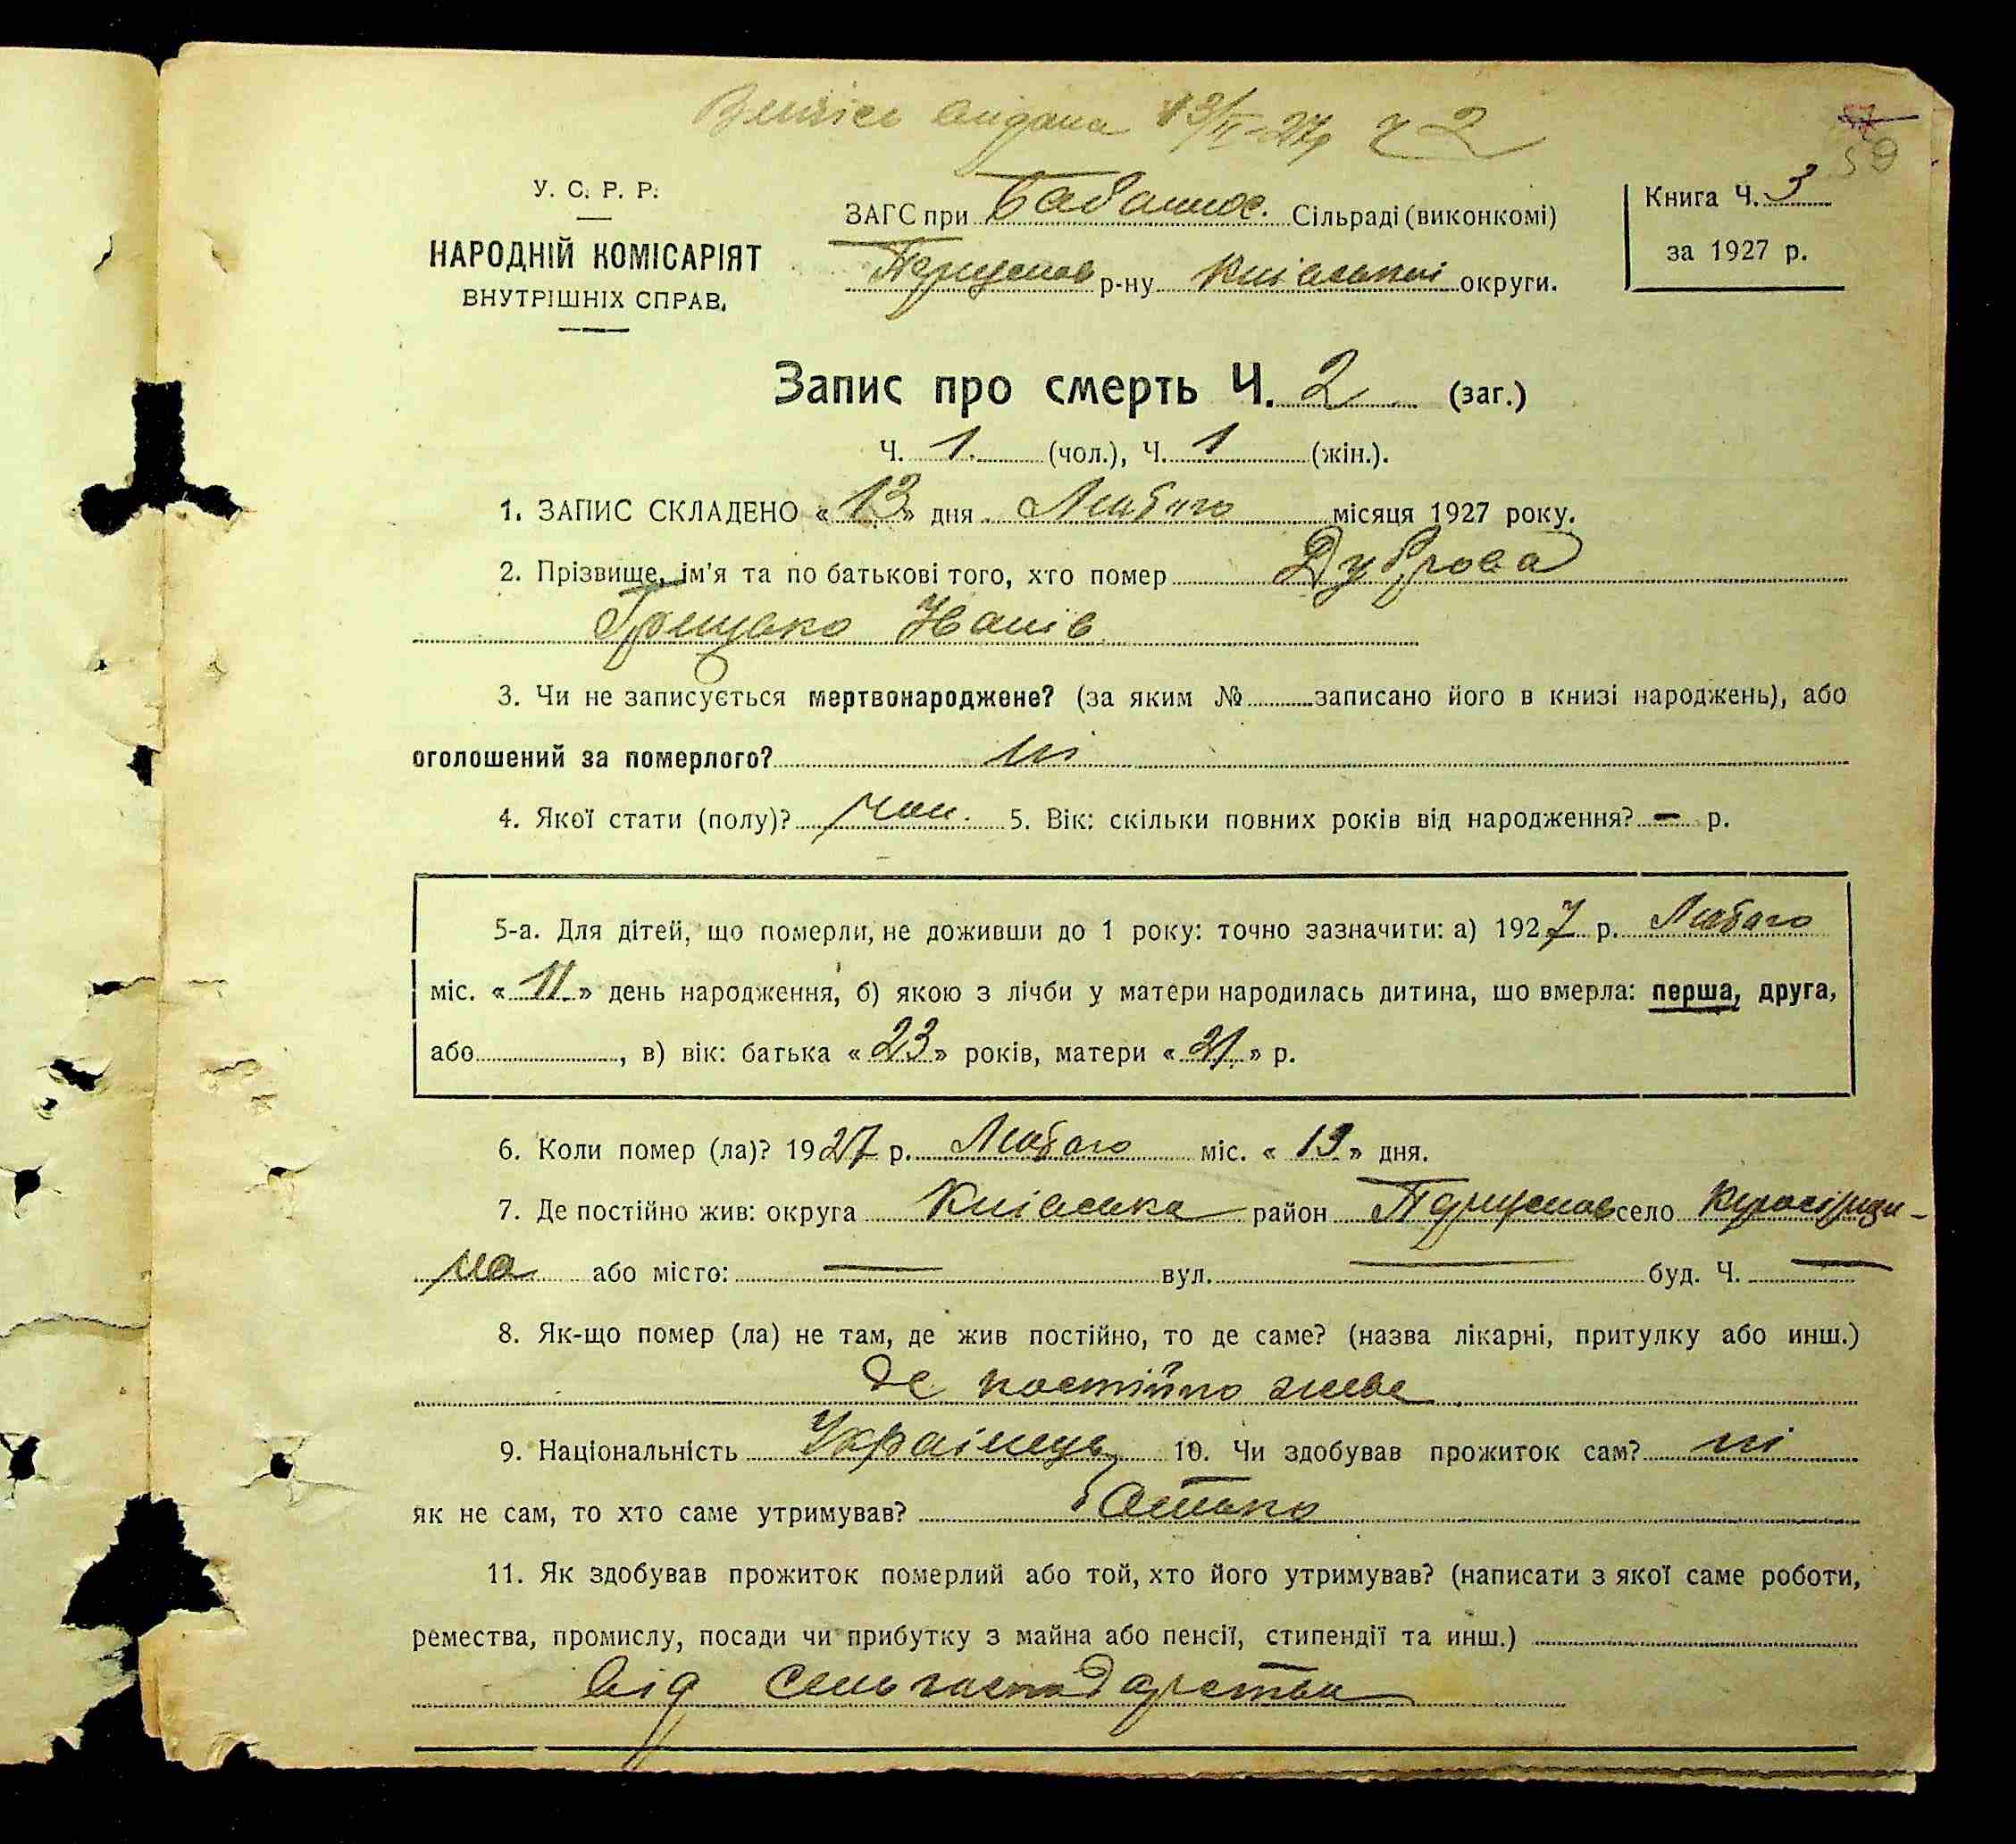 Виписс видана 13/II-27р Ч 2
59
У. С. Р. Р.
НАРОДНІЙ КОМІСАРІЯТ
ВНУТРІШНІХ СПРАВ.
ЗАГС при Бабаннос. Сільраді (виконкомі)
р-ну Київської округи.
Книга Ч. 3
за 1927 р.
Запис про смерть Ч. 2 (заг.)
Ч. 1. (чол.), Ч. 1 (жін.).
1. ЗАПИС СКЛАДЕНО « 13 » дня Лютого місяця 1927 року.
2. Прізвище, ім'я та по батькові того, хто помер Дуброва
Грицько Іванів
3. Чи не записується мертвонароджене? (за яким № записано його в книзі народжень), або
оголошений за померлого? ні
4. Якої стати (полу)? чол. 5. Вік: скільки повних років від народження? – р.
5-а. Для дітей, що померли, не доживши до 1 року: точно зазначити: а) 1927 р. Лютого
міс. « 11 » день народження, б) якою з лічби у матери народилась дитина, що вмерла: перша, друга,
або , в) вік: батька « 23 » років, матери « 21 » р.
6. Коли помер (ла)? 1927 р. Лютого міс. « 13 » дня.
7. Де постійно жив: округа Київська район село
на або місто: — вул. — буд. Ч. —
8. Як-що помер (ла) не там, де жив постійно, то де саме? (назва лікарні, притулку або инш.)
де постійно живе
9. Національність Українець 10. Чи здобував прожиток сам? ні
як не сам, то хто саме утримував? батько
11. Як здобував прожиток померлий або той, хто його утримував? (написати з якої саме роботи,
ремества, промислу, посади чи прибутку з майна або пенсії, стипендії та инш.)
від сельгосподарства